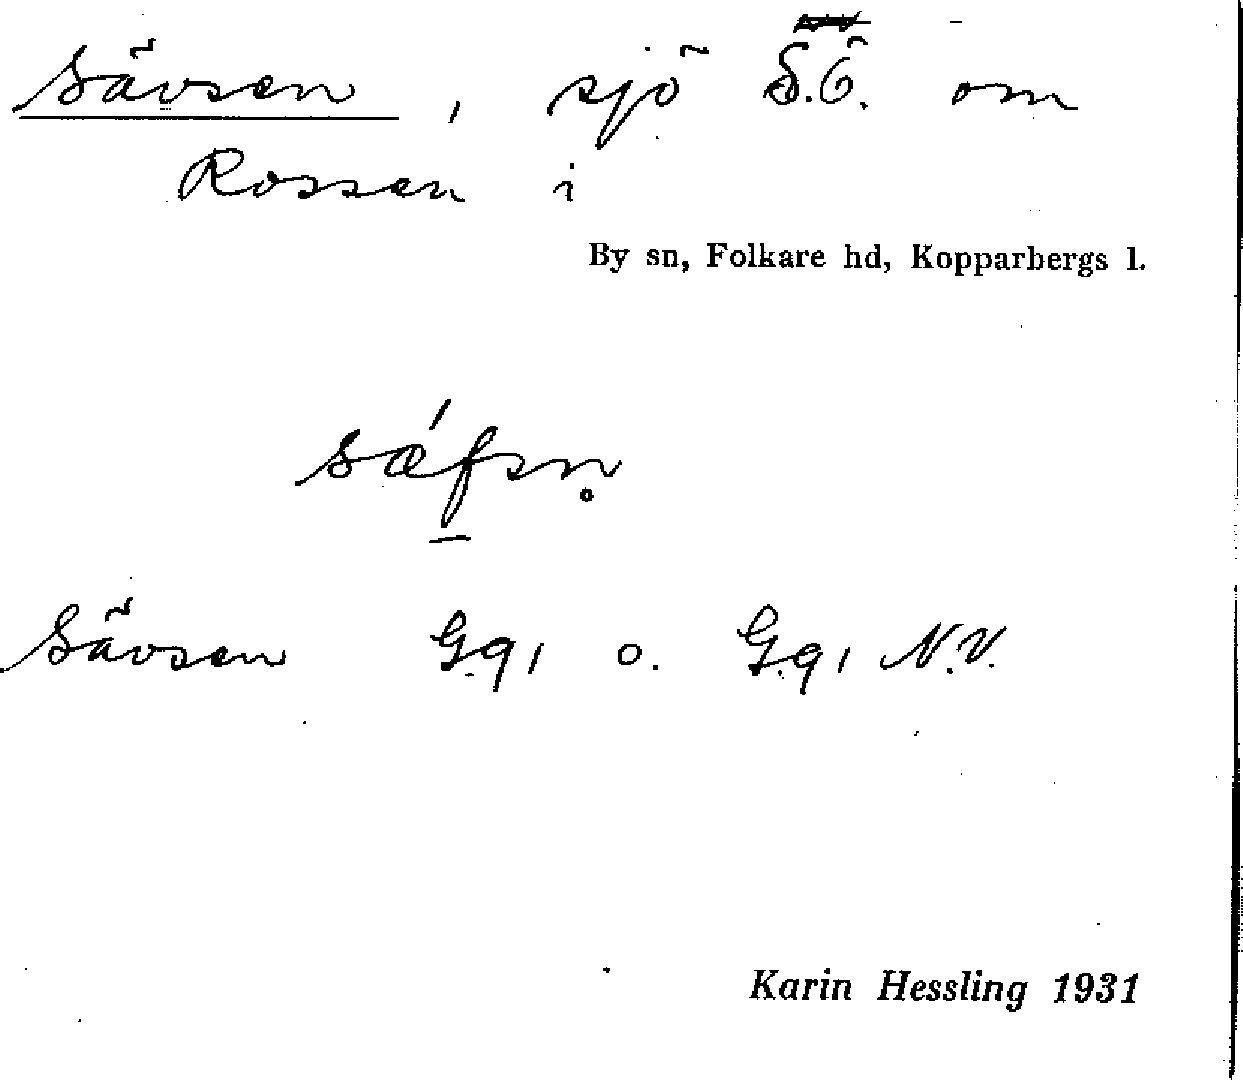 Sävsen, sjö S.Ö. om
Rossen i
By sn, Folkare hd, Kopparbergs l.
sǽfsn̥
Sävsen G.q, o. G.q, N.V.
Karin Hessling 1931